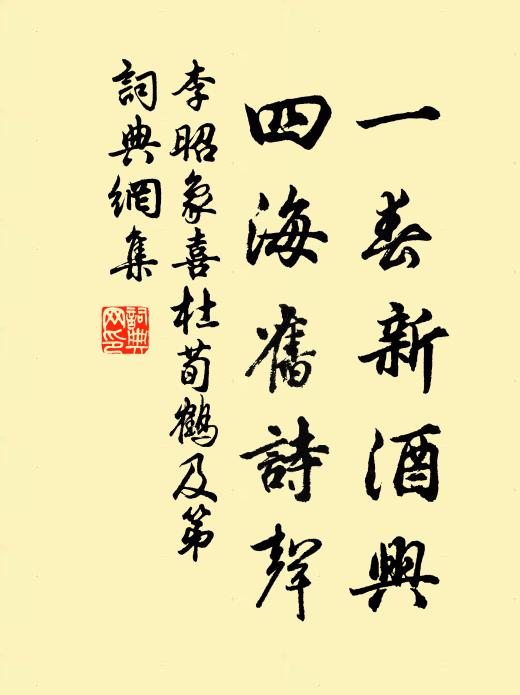 一春新酒興
四海舊詩聲
李昭象喜杜荀鶴及第
詞典網集
詞典網印